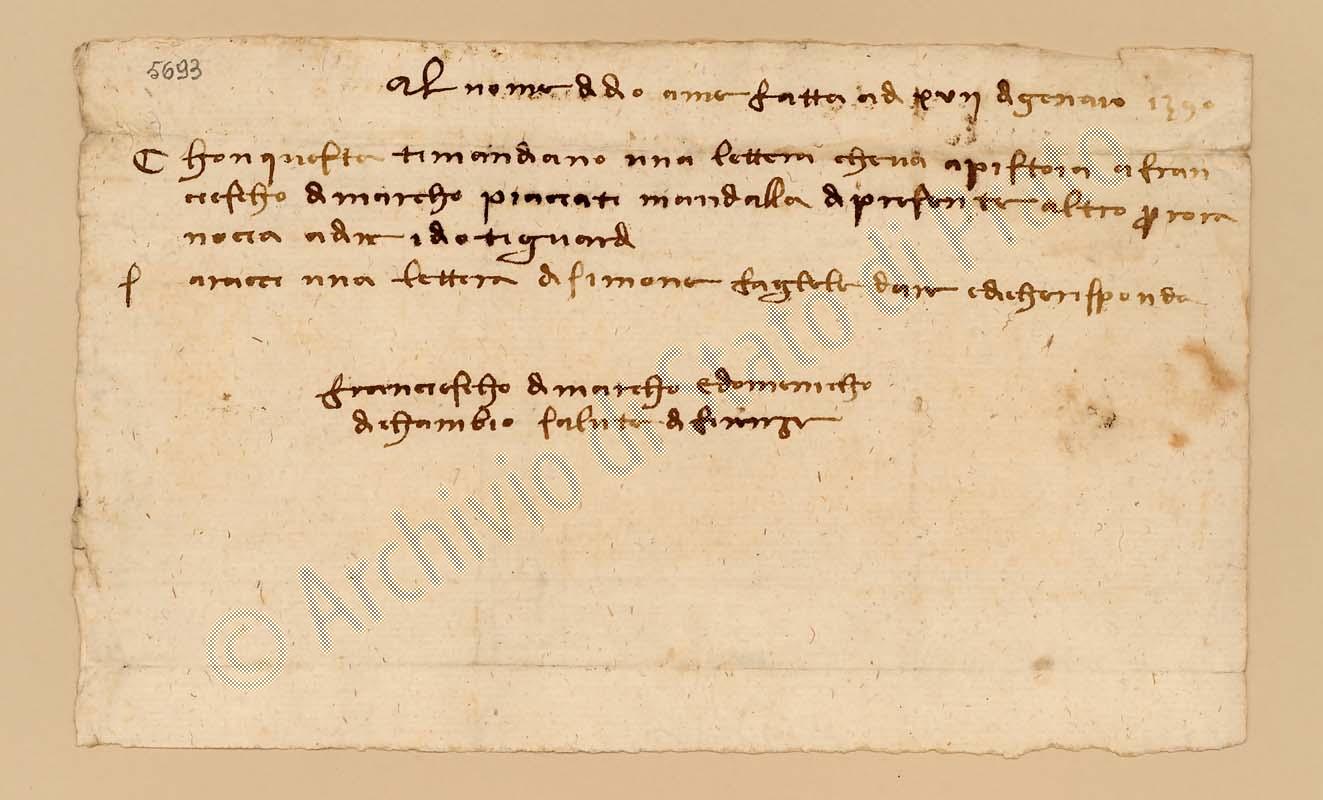 5693
Al nome di dio ame fatta adi xvii di genaio 1390
Chon questa ti mandiano una lettera che va a pistoia a fran
ciescho di marcho piacciati mandalla di presente altro per ora
nocci a dire idio ti guardi
aracci una lettera di simone fagliele dare e di che risponda
franciescho di marcho e domenicho
di chambio salute di firenze
© Archivio di Stato di Prato